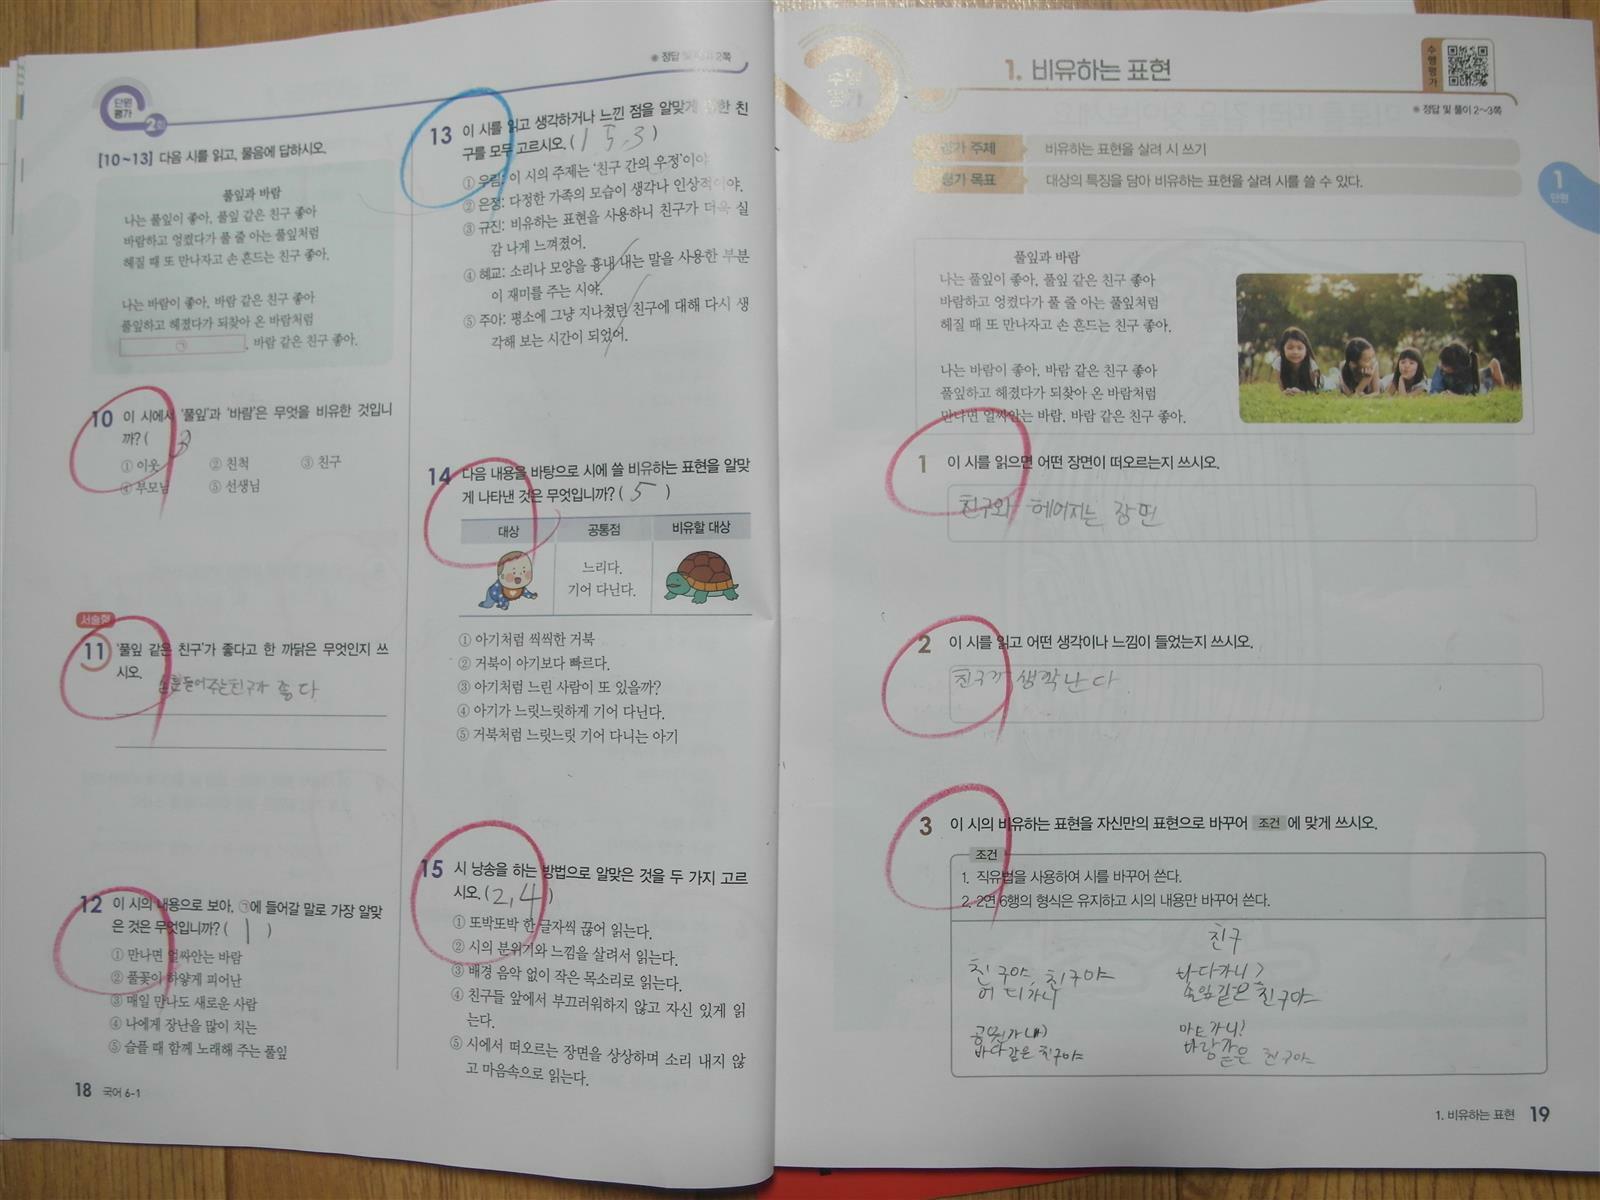 단원
평가
2회
※ 정답 및 2쪽
[10~13] 다음 시를 읽고, 물음에 답하시오.
풀잎과 바람
나는 풀잎이 좋아, 풀잎 같은 친구 좋아
바람하고 엉켰다가 풀 줄 아는 풀잎처럼
헤질 때 또 만나자고 손 흔드는 친구 좋아.
나는 바람이 좋아, 바람 같은 친구 좋아
풀잎하고 헤졌다가 되찾아 온 바람처럼
㉠ , 바람 같은 친구 좋아.
10 이 시에서 '풀잎'과 '바람'은 무엇을 비유한 것입니
까? ( 3
① 이웃 ② 친척 ③ 친구
④ 부모님 ⑤ 선생님
서술형
11 '풀잎 같은 친구'가 좋다고 한 까닭은 무엇인지 쓰
시오.
손흔들어주는친구가 좋다
12 이 시의 내용으로 보아, ㉠에 들어갈 말로 가장 알맞
은 것은 무엇입니까? ( 1 )
① 만나면 얼싸안는 바람
② 풀꽃이 하얗게 피어난
③ 매일 만나도 새로운 사람
④ 나에게 장난을 많이 치는
⑤ 슬플 때 함께 노래해 주는 풀잎
18 국어 6-1
13 이 시를 읽고 생각하거나 느낀 점을 알맞게 말한 친
구를 모두 고르시오. ( 1 5, 3 )
① 우림: 이 시의 주제는 '친구 간의 우정'이야.
② 은정: 다정한 가족의 모습이 생각나 인상적이야.
③ 규진: 비유하는 표현을 사용하니 친구가 더욱 실
감 나게 느껴졌어.
④ 혜교: 소리나 모양을 흉내 내는 말을 사용한 부분
이 재미를 주는 시야.
⑤ 주아: 평소에 그냥 지나쳤던 친구에 대해 다시 생
각해 보는 시간이 되었어.
14 다음 내용을 바탕으로 시에 쓸 비유하는 표현을 알맞
게 나타낸 것은 무엇입니까? ( 5 )
대상 공통점 비유할 대상
느리다.
기어 다닌다.
① 아기처럼 씩씩한 거북
② 거북이 아기보다 빠르다.
③ 아기처럼 느린 사람이 또 있을까?
④ 아기가 느릿느릿하게 기어 다닌다.
⑤ 거북처럼 느릿느릿 기어 다니는 아기
15 시 낭송을 하는 방법으로 알맞은 것을 두 가지 고르
시오. ( 2, 4 )
① 또박또박 한 글자씩 끊어 읽는다.
② 시의 분위기와 느낌을 살려서 읽는다.
③ 배경 음악 없이 작은 목소리로 읽는다.
④ 친구들 앞에서 부끄러워하지 않고 자신 있게 읽
는다.
⑤ 시에서 떠오르는 장면을 상상하며 소리 내지 않
고 마음속으로 읽는다.
수행
평가
1. 비유하는 표현
수행평가
※ 정답 및 풀이 2~3쪽
평가 주제 비유하는 표현을 살려 시 쓰기
평가 목표 대상의 특징을 담아 비유하는 표현을 살려 시를 쓸 수 있다.
1
단원
풀잎과 바람
나는 풀잎이 좋아, 풀잎 같은 친구 좋아
바람하고 엉켰다가 풀 줄 아는 풀잎처럼
헤질 때 또 만나자고 손 흔드는 친구 좋아.
나는 바람이 좋아, 바람 같은 친구 좋아
풀잎하고 헤졌다가 되찾아 온 바람처럼
만나면 얼싸안는 바람, 바람 같은 친구 좋아.
1 이 시를 읽으면 어떤 장면이 떠오르는지 쓰시오.
친구와 헤어지는 장면
2 이 시를 읽고 어떤 생각이나 느낌이 들었는지 쓰시오.
친구가 생각난다
3 이 시의 비유하는 표현을 자신만의 표현으로 바꾸어 조건 에 맞게 쓰시오.
조건
1. 직유법을 사용하여 시를 바꾸어 쓴다.
2. 2연 6행의 형식은 유지하고 시의 내용만 바꾸어 쓴다.
친구
친구야, 친구야
어디가니
바다같은 친구야
친구야
마트가니?
바람같은 친구야
1. 비유하는 표현 19